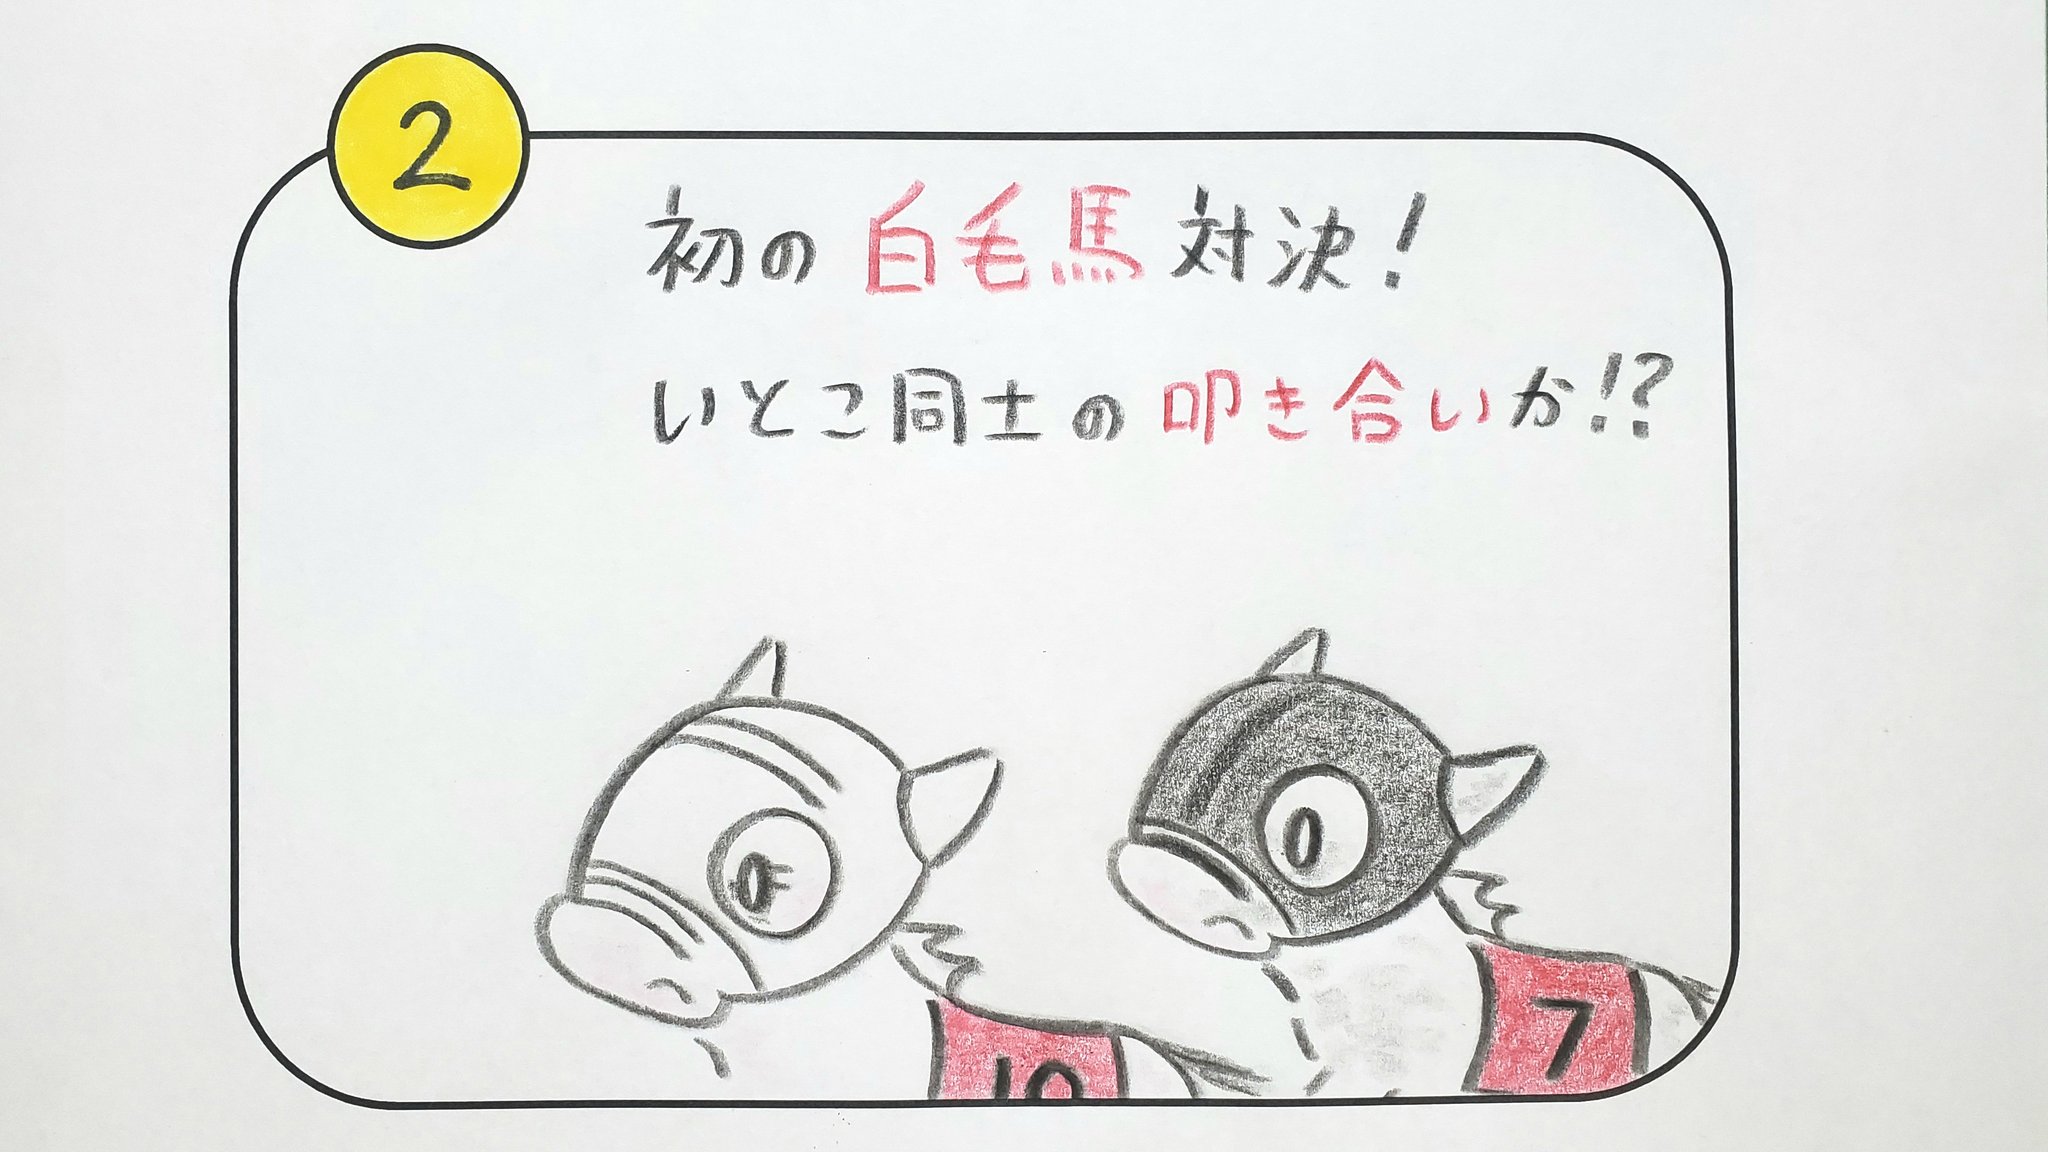 2
初の白毛馬対決!
いとこ同士の叩き合いか!?
10
7